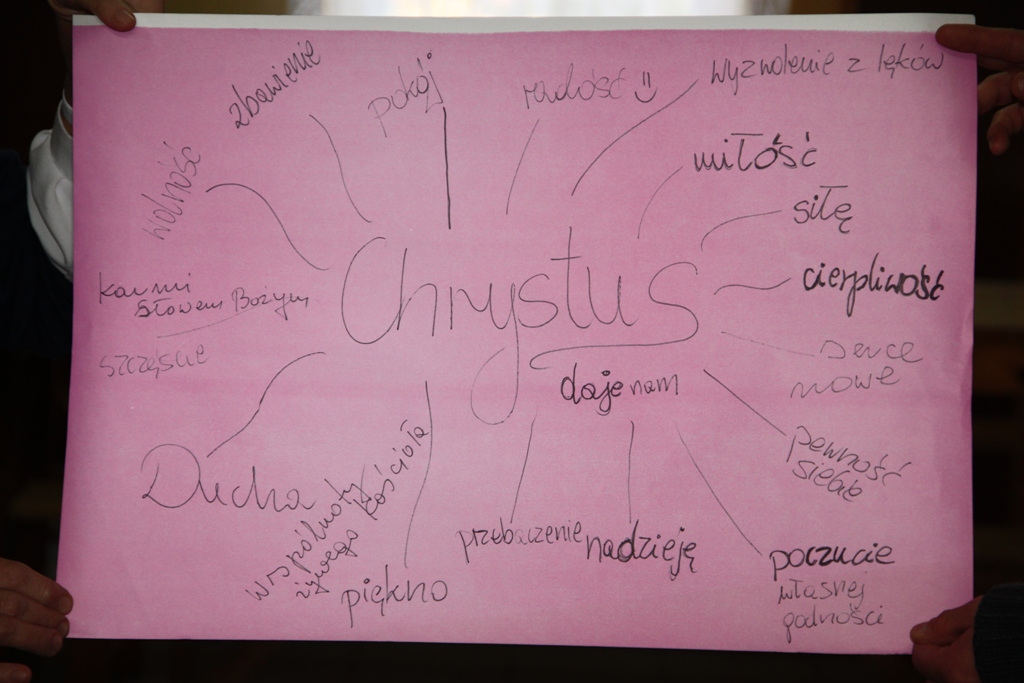 zbawienie
pokój
radość
wyzwolenie z lęków
wolność
miłość
siłę
Karmi
Słowem Bożym
Chrystus
cierpliwość
szczęście
serce
nowe
daje nam
Ducha
wspólnoty
żywego Kościoła
pewność
siebie
piękno
przebaczenie
nadzieję
poczucie
własnej
godności